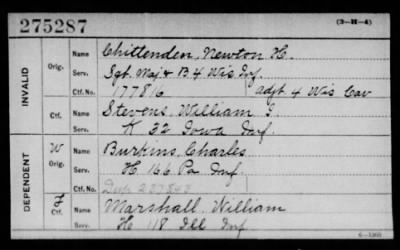 275287
(3-H-4)
INVALID
Orig.
Name Chittenden, Newton H.
Serv. Sgt. Maj. & B. 4 Wis. Inf.
Ctf. No. 177816 adjt 4 Wis Cav
Ctf.
Name Stevens, William
Serv. K 32 Iowa Inf.
DEPENDENT
W
Orig.
Name Burkins, Charles
Serv. H. 166 Pa Inf.
Ctf. No.
F
Ctf.
Name Marshall, William
Serv. H 118 Ill Inf